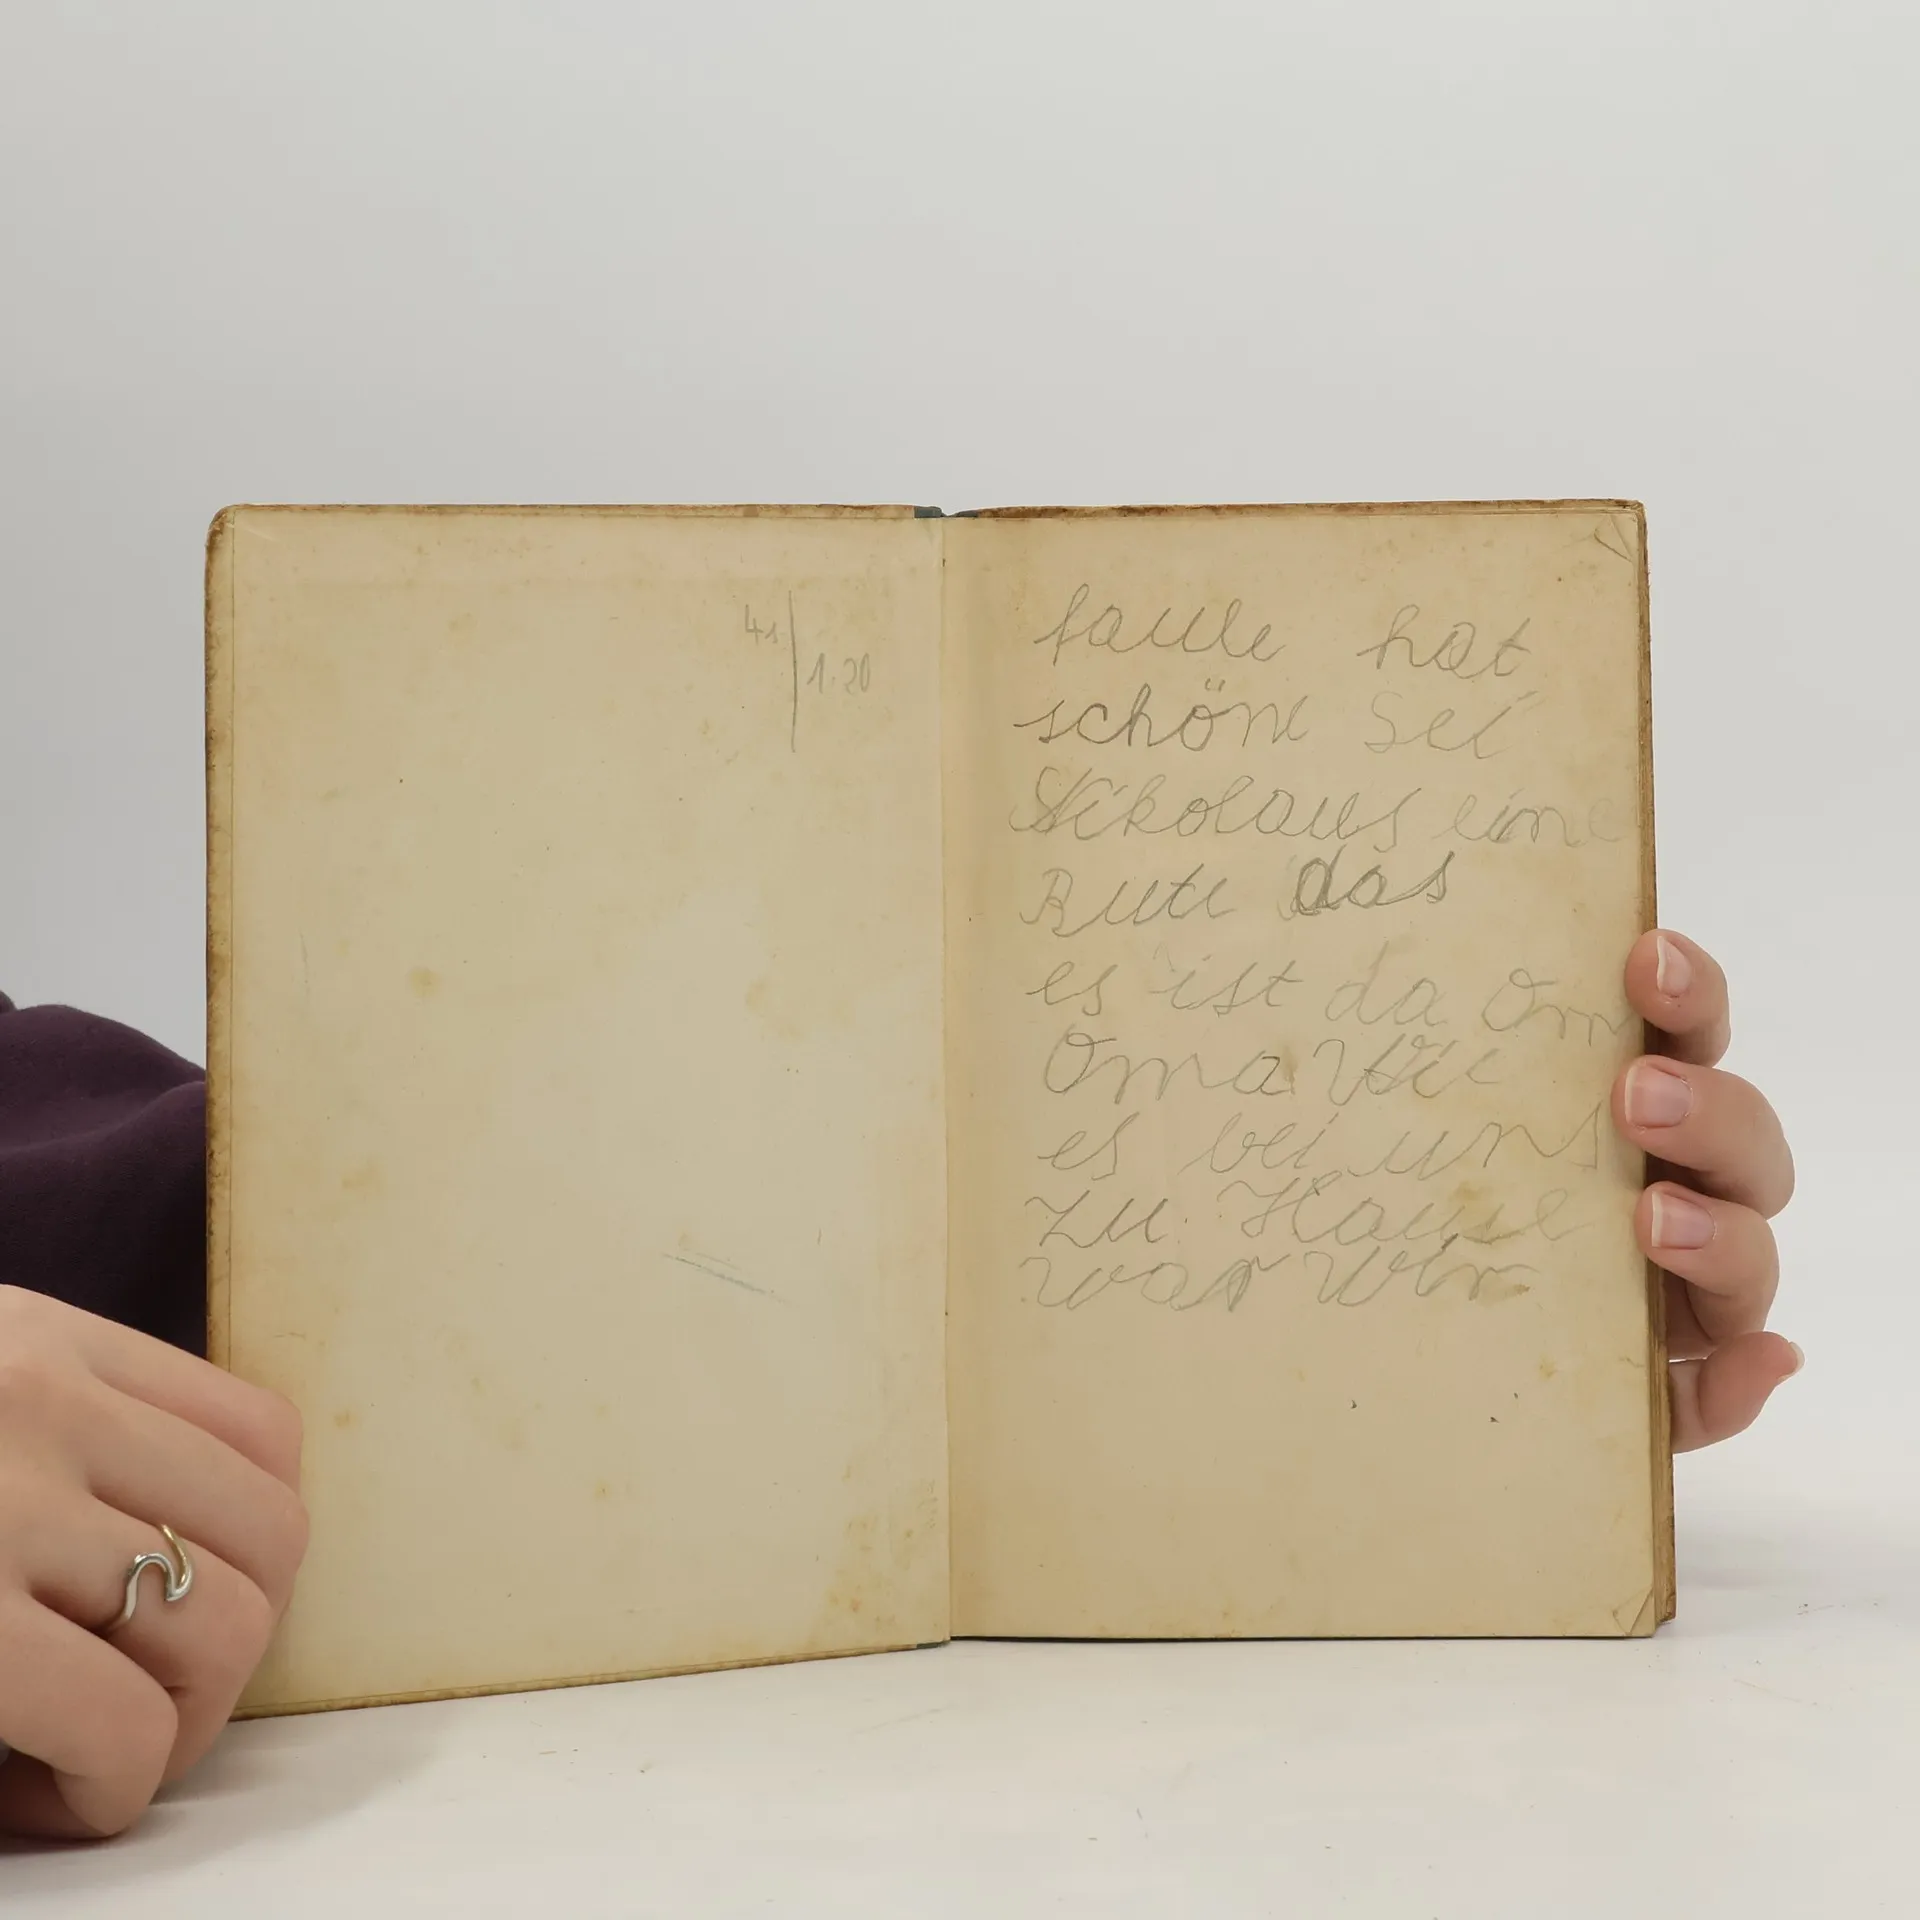 41
1.20
faule hat
schöne Sei
Nikolaus eine
Rute das
es ist da Om
Oma Wie
es bei uns
zu Hause
war Wir